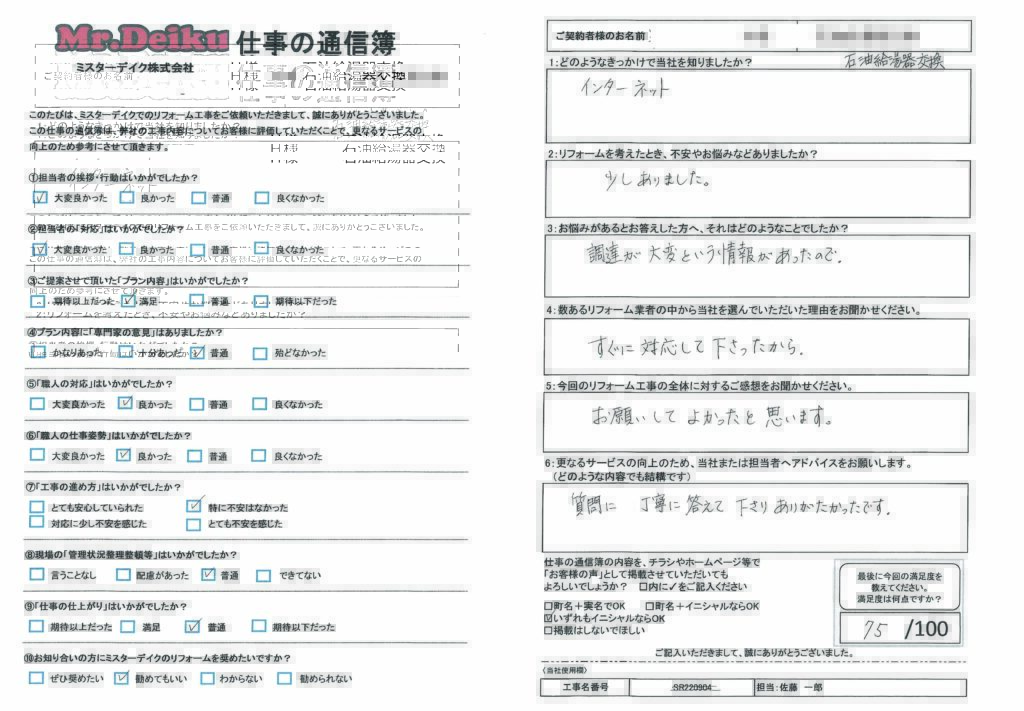 Mr.Deiku 仕事の通信簿
ミスターデイク株式会社
ご契約者様のお名前
石油給湯器交換
このたびは、ミスターデイクでのリフォーム工事をご依頼いただきまして、誠にありがとうございました。
この仕事の通信簿は、弊社の工事内容についてお客様に評価していただくことで、更なるサービスの
向上のため参考にさせて頂きます。
①担当者の挨拶・行動はいかがでしたか?
☑ 大変良かった □ 良かった □ 普通 □ 良くなかった
②担当者の「対応」はいかがでしたか?
☑ 大変良かった □ 良かった □ 普通 □ 良くなかった
③ご提案させて頂いた「プラン内容」はいかがでしたか?
□ 期待以上だった ☑ 満足 □ 普通 □ 期待以下だった
④プラン内容に「専門家の意見」はありましたか?
□ かなりあった □ 十分あった ☑ 普通 □ 殆どなかった
⑤「職人の対応」はいかがでしたか?
□ 大変良かった ☑ 良かった □ 普通 □ 良くなかった
⑥「職人の仕事姿勢」はいかがでしたか?
□ 大変良かった ☑ 良かった □ 普通 □ 良くなかった
⑦「工事の進め方」はいかがでしたか?
□ とても安心していられた ☑ 特に不安はなかった
□ 対応に少し不安を感じた □ とても不安を感じた
⑧現場の「管理状況整理整頓等」はいかがでしたか?
□ 言うことなし □ 配慮があった ☑ 普通 □ できてない
⑨「仕事の仕上がり」はいかがでしたか?
□ 期待以上だった □ 満足 ☑ 普通 □ 期待以下だった
⑩お知り合いの方にミスターデイクのリフォームを奨めたいですか?
□ ぜひ奨めたい ☑ 勧めてもいい □ わからない □ 勧められない
ご契約者様のお名前
石油給湯器交換
1:どのようなきっかけで当社を知りましたか?
インターネット
2:リフォームを考えたとき、不安やお悩みなどありましたか?
少しありました。
3:お悩みがあるとお答えした方へ、それはどのようなことでしたか?
調達が大変という情報があったので。
4:数あるリフォーム業者の中から当社を選んでいただいた理由をお聞かせください。
すぐに対応して下さったから。
5:今回のリフォーム工事の全体に対するご感想をお聞かせください。
お願いしてよかったと思います。
6:更なるサービスの向上のため、当社または担当者へアドバイスをお願いします。
(どのような内容でも結構です)
質問に 丁寧に答えて下さりありがたかったです。
仕事の通信簿の内容を、チラシやホームページ等で
「お客様の声」として掲載させていただいても
よろしいでしょうか? □内に✓をご記入ください
□町名+実名でOK □町名+イニシャルならOK
☑いずれもイニシャルならOK
□掲載はしないでほしい
最後に今回の満足度を
教えてください。
満足度は何点ですか?
75 /100
ご記入いただきまして、誠にありがとうございました。
(当社使用欄)
工事名番号 SR220904 担当:佐藤 一郎